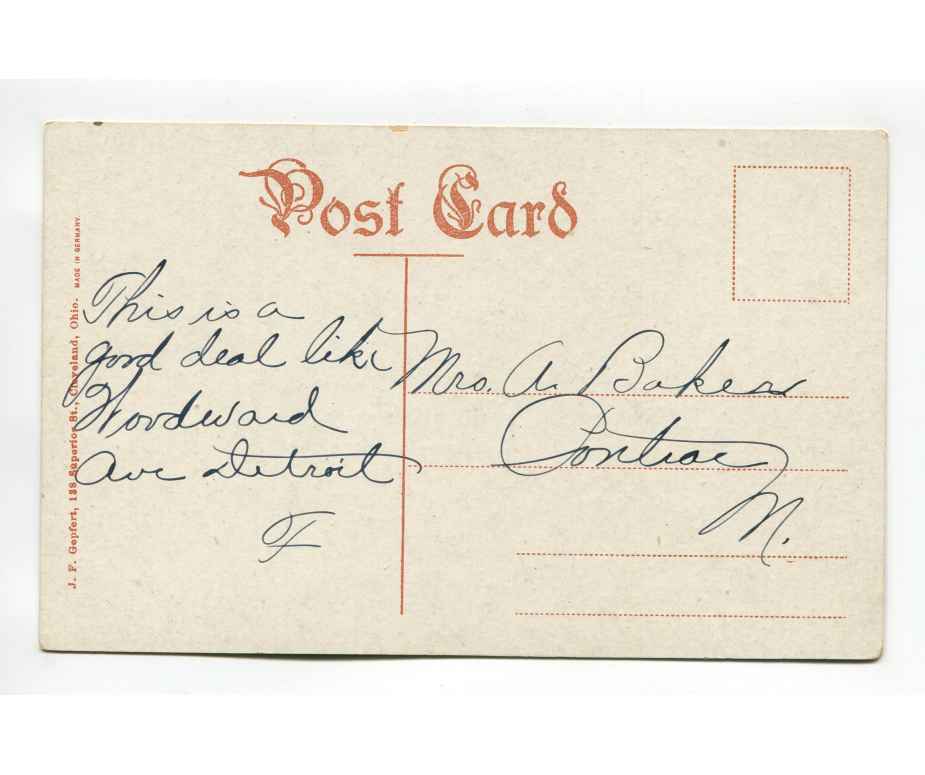 Post Card
This is a
good deal like
Woodward
Ave Detroit
F
Mrs. A. Baker
Pontiac
M.
J. F. Gepfert, 138 Superior St., Cleveland, Ohio. MADE IN GERMANY.